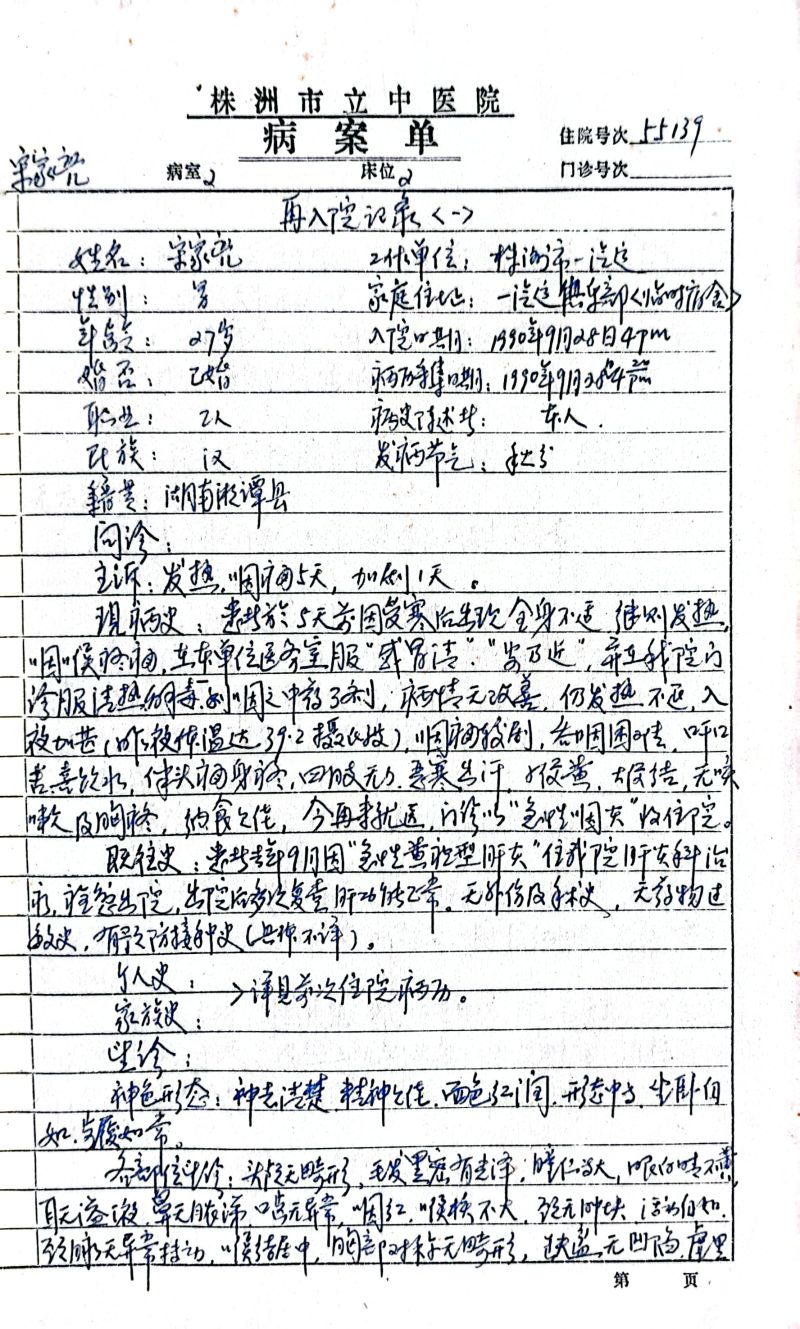 株洲市立中医院
病案单
住院号次 55139
宋家亮
病室2 床位2 门诊号次
再入院记录<一>
姓名：宋家亮 工作单位：株洲市一汽运
性别：男 家庭住址：一汽运俱乐部<临时宿舍>
年龄：27岁 入院日期：1990年9月28日4pm
婚否：已婚 病历采集日期：1990年9月28日4 20 pm
职业：工人 病史陈述者：本人.
民族：汉 发病节气：秋分
籍贯：湖南湘潭县
问诊：
主诉：发热，咽痛5天，加剧1天。
现病史：患者于5天前因受寒后出现全身不适，继则发热，
咽喉疼痛，在本单位医务室服“感冒清”、“安乃近”，并在我院门
诊服清热解毒利咽之中药3剂，病情无改善，仍发热不退，入
夜加甚(昨夜体温达39.2摄氏度)，咽痛较剧，吞咽困难，口干口
苦喜饮水，伴头痛身疼，四肢无力，恶寒出汗，小便黄，大便结，无咳
嗽及胸疼，纳食欠佳，今再来就医，门诊以“急性咽炎”收住院。
既往史：患者去年9月因“急性黄疸型肝炎”住我院肝炎科治
疗，痊愈出院，出院后多次复查肝功能正常。无外伤及手术史，无药物过
敏史，有预防接种史(具体不详)。
个人史：
>详见前次住院病历。
家族史：
望诊：
神色形态：神志清楚，精神欠佳，面色红润，形态中等，坐卧自
如，步履如常。
各部位望诊：头颅无畸形，毛发黑密有光泽，瞳仁等大，眼白睛不黄，
耳无溢液，鼻无脓涕，口唇无异常，咽红，喉核不大，颈无肿块，活动自如，
颈脉无异常搏动，喉结居中，胸部对称无畸形，缺盆无凹陷，虚里
第 页